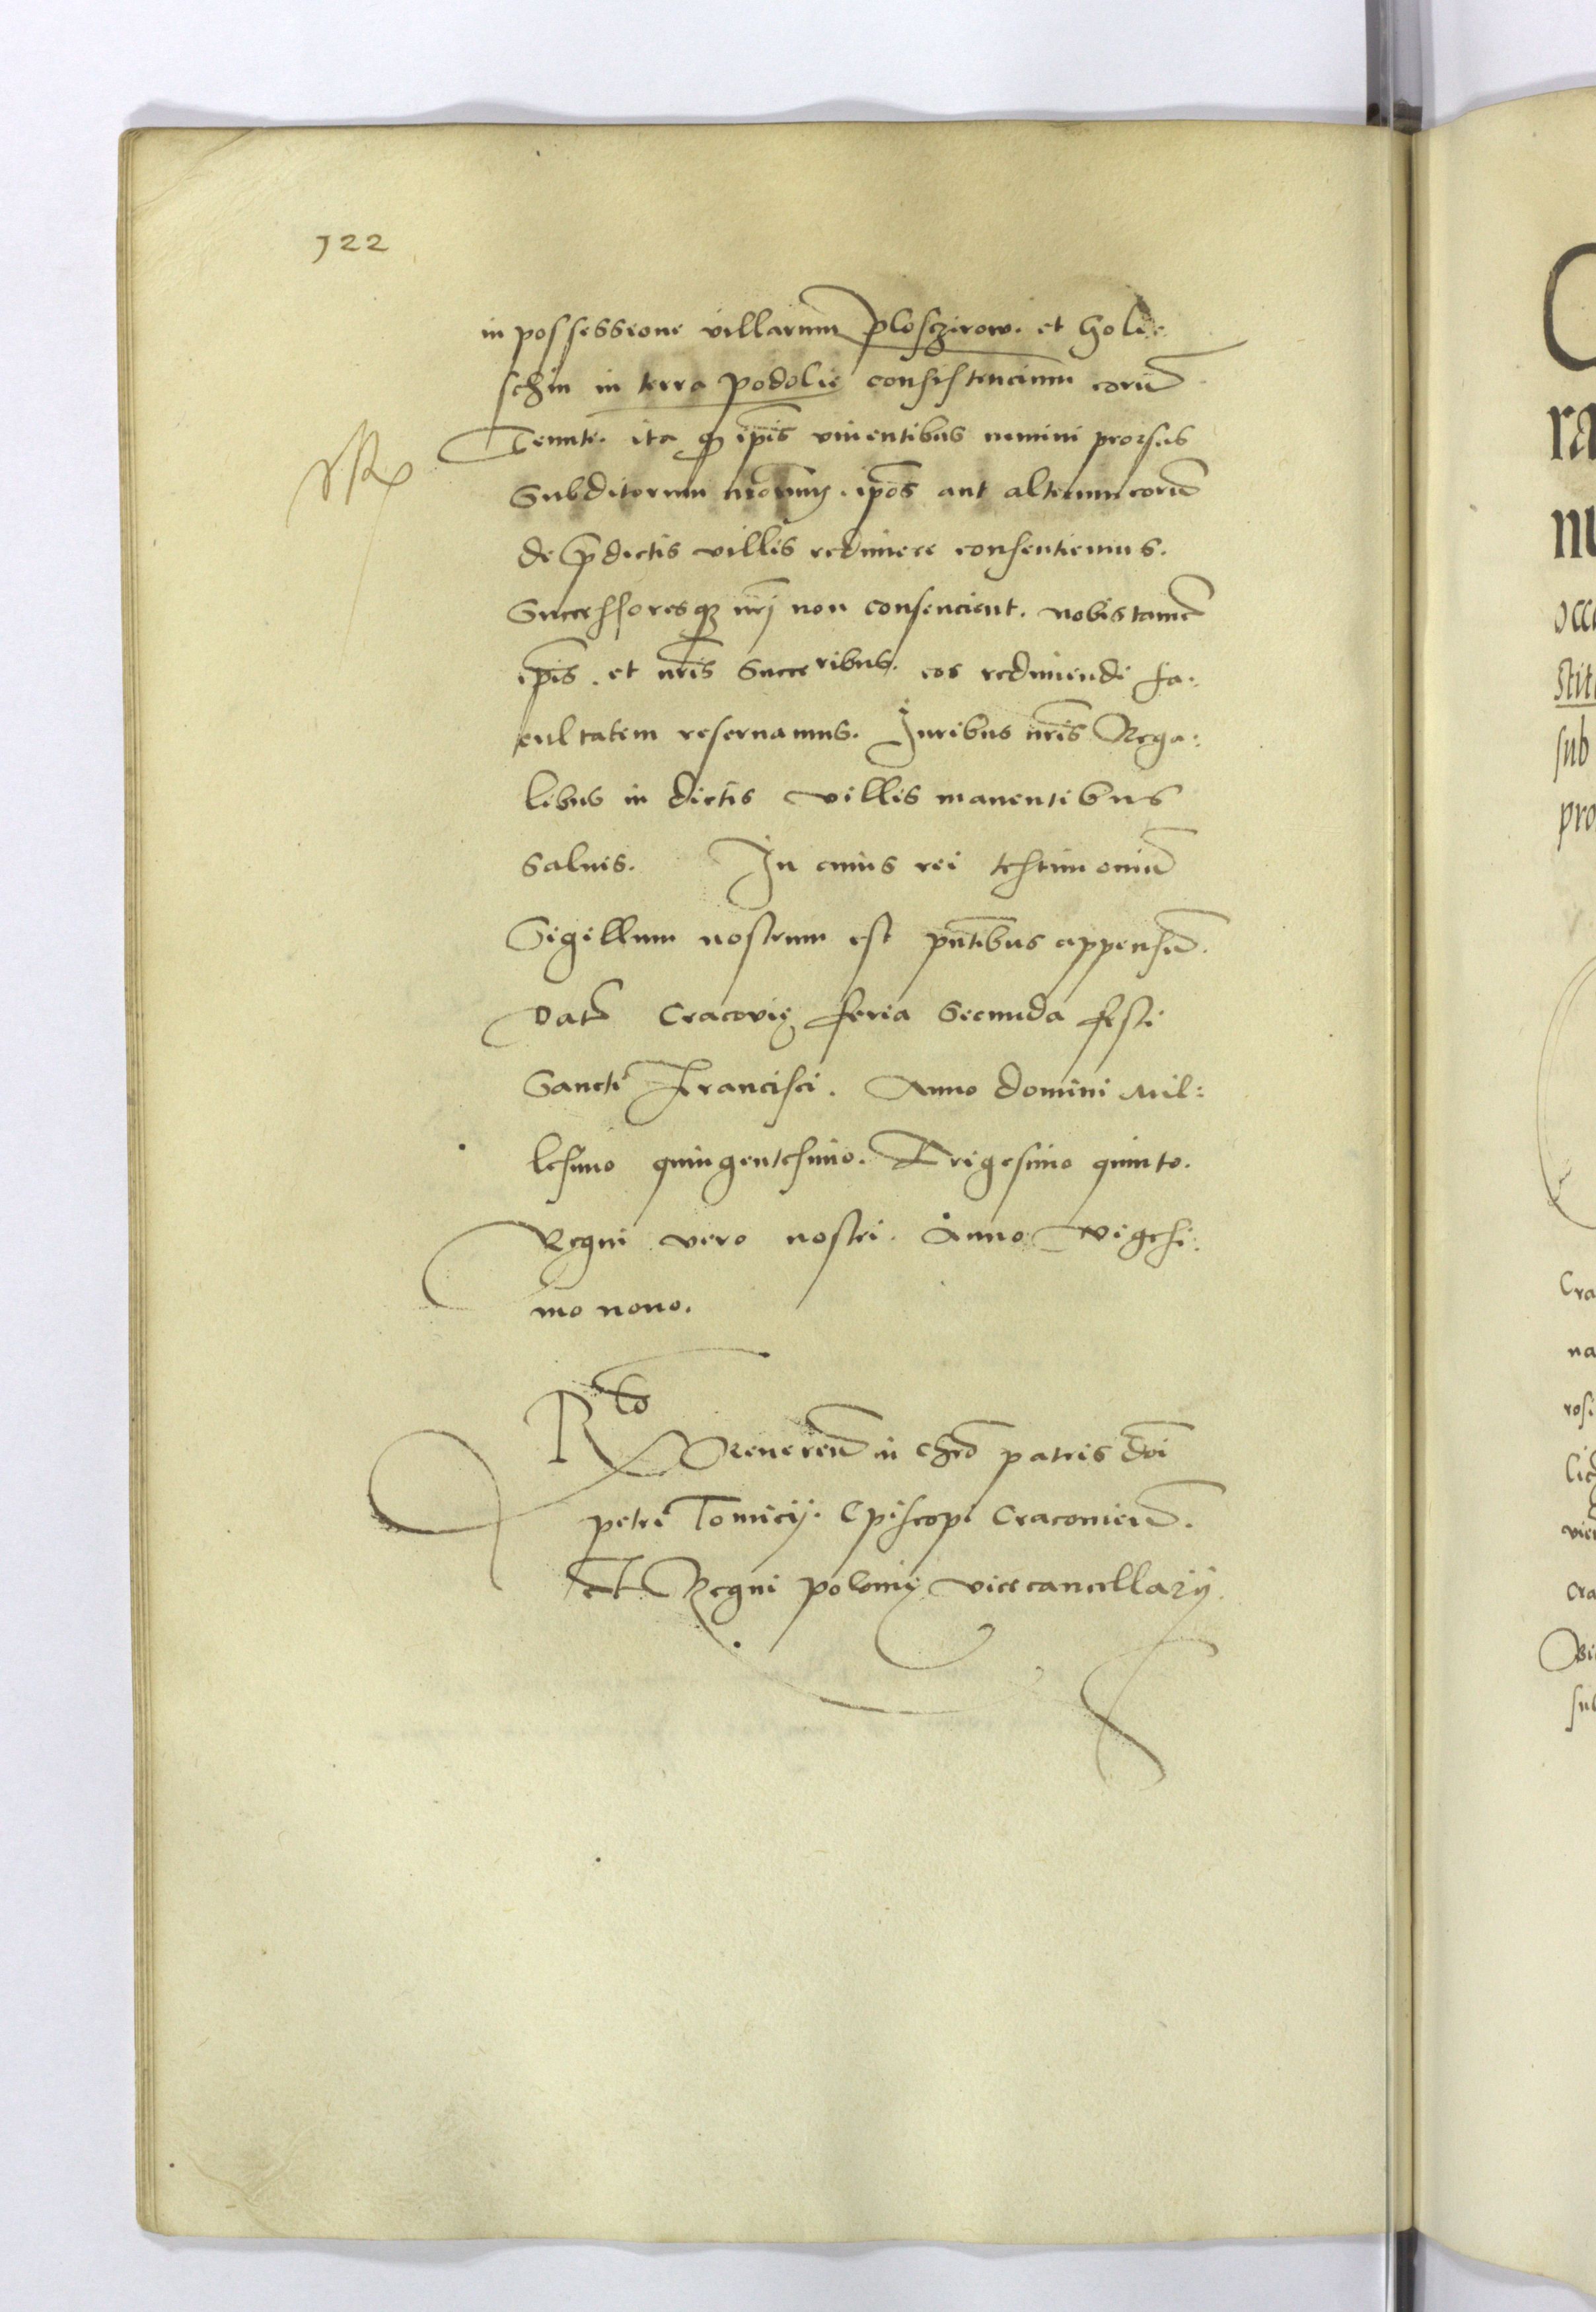 122
in possessione villarum Ploschirow. et Hole:
schin in terra Podolie consistencium eorum
Tenute. ita qz ip̄is viuentibus nemini prorsus
Subditorum nr̄orum. ip̄os aut alterum eorum
de p̄dictis villis redimere consentiemus.
Successoresqz nr̄j non consencient. nobis tamē
ip̄is. et nr̄is Succeribus. eos redimendi fa:
cultatem reseruamus. Juribus nr̄is Rega:
libus in dictis villis manentibus
saluis. In cuius rei testimoniū
Sigillum nostrum est pn̄tibus appensū.
Dat̄ Cracovię feria Secunda festi
Sancti Francisci. Anno domini Mil:
lesimo quingentesimo. Trigesimo quinto.
Regni vero nostri. Anno vigesi:
mo nono.
Rᵗᵒ
Reueren̄ in chro̅ patris dn̄i
petri Tomicij. Episcopi Cracouien̄.
Et Regni polonię vicecancellarij.
ra
nu
occ
stit
sub
pro
Cra
na
rosi
lic
vien
cra
sub